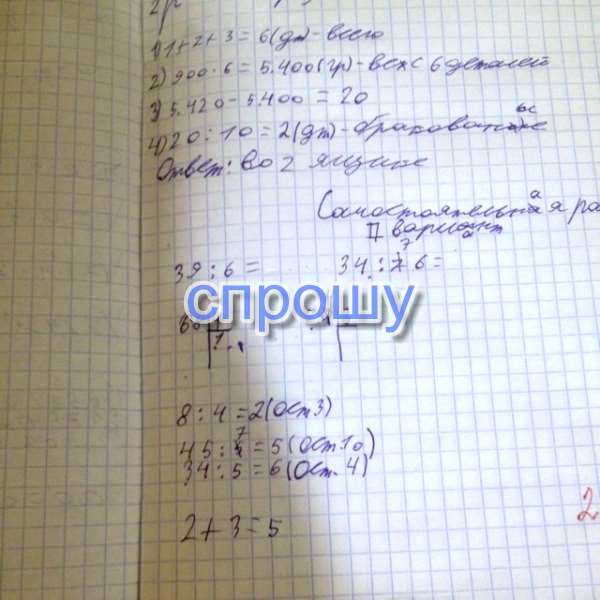 1) 1+2+3=6(дт)-всего
2) 900·6=5.400(гр)-вех с 6 деталей
3) 5.420-5.400=20
4) 20:10=2(дт)-бракованные
Ответ: во 2 ящике
Самостоятельная ра
II вариант
39:6= 34:7 6=
спрошу
8:4=2(Ост3)
45:7=5(Ост10)
34:5=6(Ост.4)
2+3=5
2